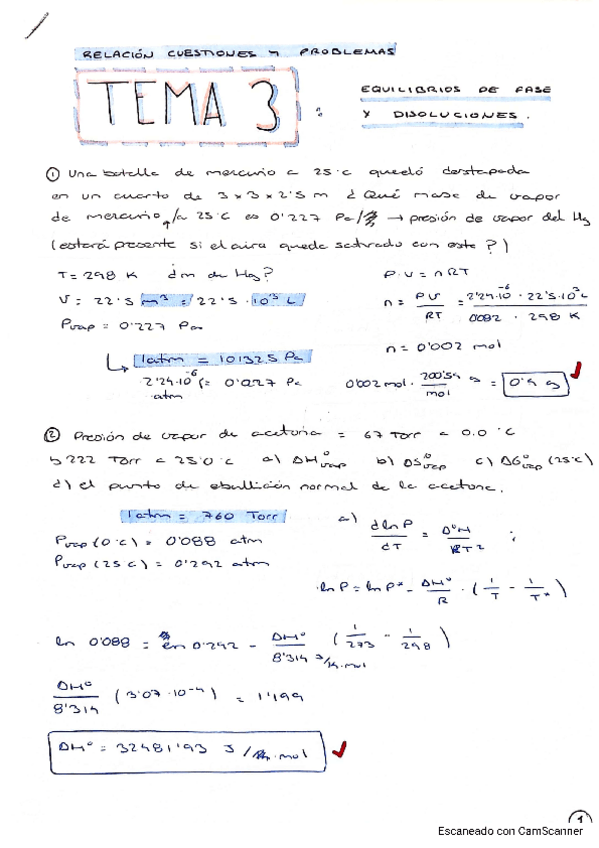 RELACIÓN CUESTIONES Y PROBLEMAS
TEMA 3 :
EQUILIBRIOS DE FASE
Y DISOLUCIONES.
① Una botella de mercurio a 25°C quedó destapada
en un cuarto de 3x3x2'5 m ¿Qué masa de vapor
de mercurio, a 25°C es 0'227 Pa → presión de vapor del Hg
(estará presente si el aire queda saturado con este?)
T = 298 K ¿m de Hg?
V = 22'5 m³ = 22'5 · 10³ L
Pvap = 0'227 Pa
1atm = 101325 Pa
2'24·10⁻⁶ = 0'227 Pa
atm
P·V = nRT
n = PV/RT = 2'24·10⁻⁶ · 22'5·10³L / 0082 · 298 K
n = 0'002 mol
0'002 mol · 200'59 g/mol = 0'4 g
② Presión de vapor de acetona = 67 Torr a 0.0 °C
y 222 Torr a 25'0°C a) ΔH°vap b) ΔS°vap c) ΔG°vap (25°C)
d) el punto de ebullición normal de la acetona.
1atm = 760 Torr
Pvap (0°C) = 0'088 atm
Pvap (25°C) = 0'292 atm
a) dlnP/dT = Δ°H/RT² ;
ln P = ln P* - ΔH°/R · (1/T - 1/T*)
ln 0'088 = ln 0'292 - ΔH°/8'314 J/K·mol (1/273 - 1/298)
ΔH°/8'314 (3'07·10⁻⁴) = 1'199
ΔH° = 32481'93 J/mol
1
Escaneado con CamScanner